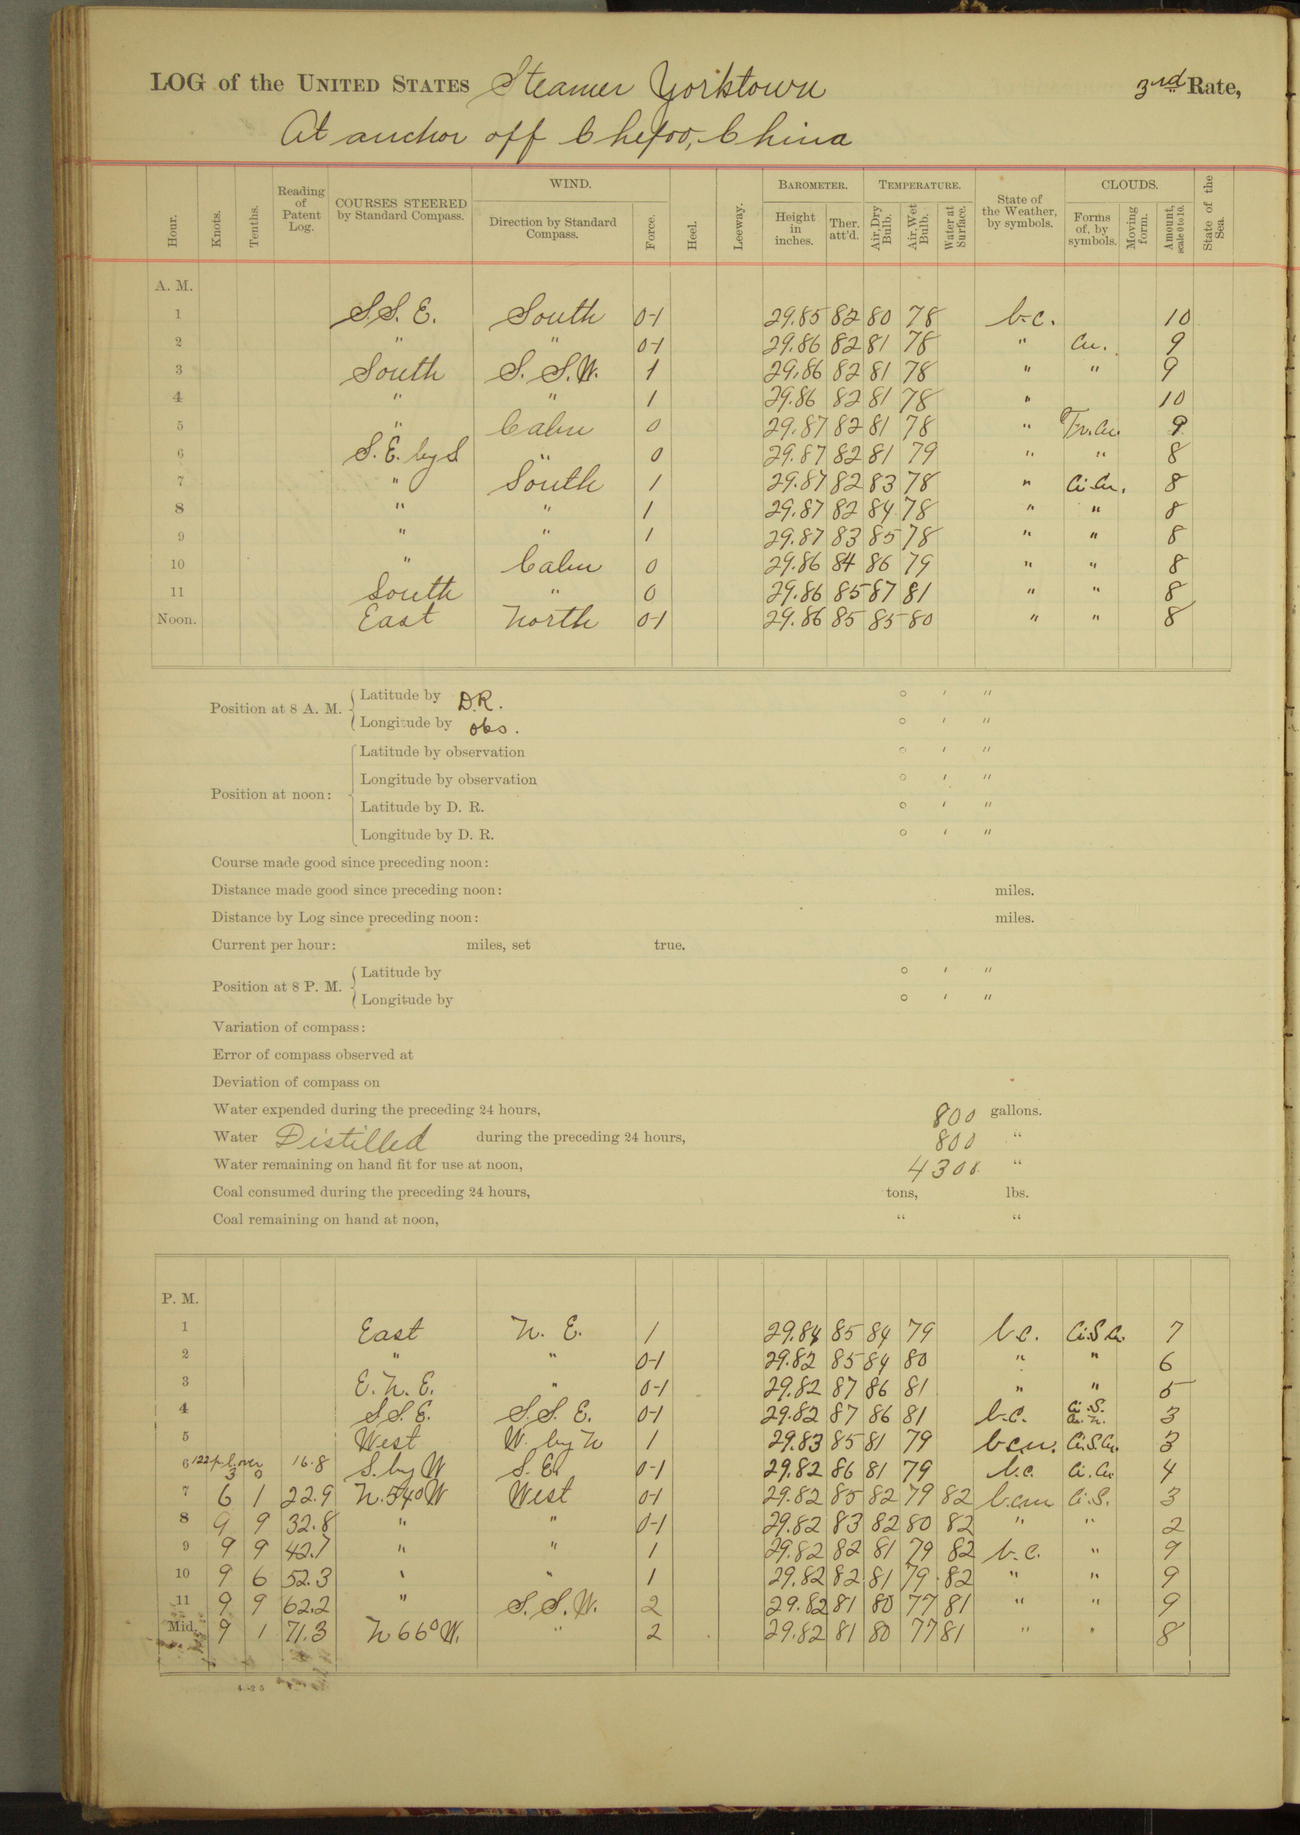 LOG of the UNITED STATES Steamer Yorktown 3rd Rate,
At anchor off Chefoo, China
Hour. Knots. Tenths. Reading of Patent Log. COURSES STEERED by Standard Compass. WIND. Direction by Standard Compass. Force. Heel. Leeway. BAROMETER. Height in inches. Ther. att'd. TEMPERATURE. Air, Dry Bulb. Air, Wet Bulb. Water at Surface. State of the Weather, by symbols. CLOUDS. Forms of, by symbols. Moving form. Amount, scale 0 to 10. State of the Sea.
A. M.
1 S.S.E. South 0-1 29.85 82 80 78 b.c. 10
2 " " 0-1 29.86 82 81 78 " Cu. 9
3 South S.S.W. 1 29.86 82 81 78 " " 9
4 " " 1 29.86 82 81 78 " 10
5 " Calm 0 29.87 82 81 78 " Fr.Cu. 9
6 S.E. by S " 0 29.87 82 81 79 " " 8
7 " South 1 29.87 82 83 78 " Ci.Cu. 8
8 " " 1 29.87 82 84 78 " " 8
9 " " 1 29.87 83 85 78 " " 8
10 " Calm 0 29.86 84 86 79 " " 8
11 South " 0 29.86 85 87 81 " " 8
Noon. East North 0-1 29.86 85 85 80 " " 8
Position at 8 A. M. Latitude by D.R. ° ′ ″
Longitude by obs. ° ′ ″
Position at noon: Latitude by observation ° ′ ″
Longitude by observation ° ′ ″
Latitude by D. R. ° ′ ″
Longitude by D. R. ° ′ ″
Course made good since preceding noon:
Distance made good since preceding noon: miles.
Distance by Log since preceding noon: miles.
Current per hour: miles, set true.
Position at 8 P. M. Latitude by ° ′ ″
Longitude by ° ′ ″
Variation of compass:
Error of compass observed at
Deviation of compass on
Water expended during the preceding 24 hours, 800 gallons.
Water Distilled during the preceding 24 hours, 800 "
Water remaining on hand fit for use at noon, 4300 "
Coal consumed during the preceding 24 hours, tons, lbs.
Coal remaining on hand at noon, " "
P. M.
1 East N. E. 1 29.84 85 84 79 b.c. Ci.S.Cu. 7
2 " " 0-1 29.82 85 84 80 " " 6
3 E.N.E. " 0-1 29.82 87 86 81 " " 5
4 S.S.E. S.S.E. 0-1 29.82 87 86 81 b.c. Ci.S. Cu.N. 3
5 West W. by N 1 29.83 85 81 79 b.c.m. Ci.S.Cu. 3
6 3 0 16.8 S. by W S.E. 0-1 29.82 86 81 79 b.c. Ci.Cu. 4
7 6 1 22.9 N.54°W West 0-1 29.82 85 82 79 82 b.c.m Ci.S. 3
8 9 9 32.8 " " 0-1 29.82 83 82 80 82 " " 2
9 9 9 42.7 " " 1 29.82 82 81 79 82 b.c. " 9
10 9 6 52.3 " " 1 29.82 82 81 79 82 " " 9
11 9 9 62.2 " S.S.W. 2 29.82 81 80 77 81 " " 9
Mid. 9 1 71.3 N 66° W. " 2 29.82 81 80 77 81 " " 8